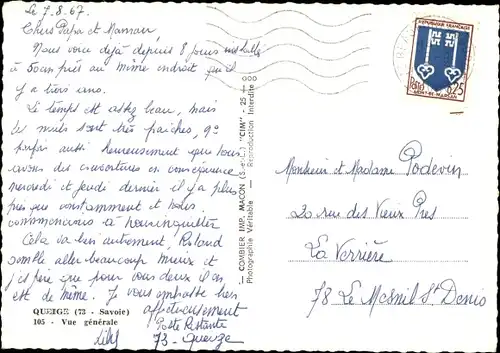 Le 7.8.67
Chers Papa et Maman,
Nous voici déjà depuis 8 jours
à 50 cm près au même endroit qu'il
y a trois ans.
Le temps est assez beau, mais
les nuits sont très fraîches, 9°
parfois aussi heureusement que nous
avons des couvertures en conséquence
Mercredi et Jeudi dernier il y a plus
presque constamment et nous
commencions à
Cela va bien autrement, Roland
semble aller beaucoup mieux et
j'espère que pour vous deux il en
est de même. Je vous embrasse bien
affectueusement
Poste Restante
73 - Queige
QUEIGE (73 - Savoie)
105 - Vue générale
COMBIER IMP. MACON (S.-et-L.) "CIM" - 25 - 600
Photographie Véritable - Reproduction Interdite
REPUBLIQUE FRANÇAISE
Postes 0,25
MONT-DE-MARSAN
Monsieur et Madame Podevin
20 rue des Vieux Prés
La Verrière
78 Le Mesnil St Denis